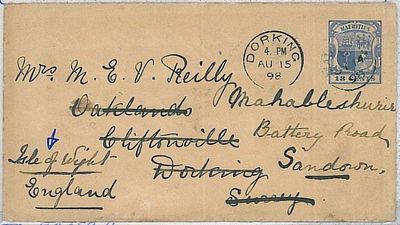 DORKING
4. PM
AU 15
98
MAURITIUS
18 CENTS
Mrs. M. E. V. Reilly
Oaklands
Cliftonville
Dorking
Surrey
Battery Road
Sandown,
Isle of Wight
England